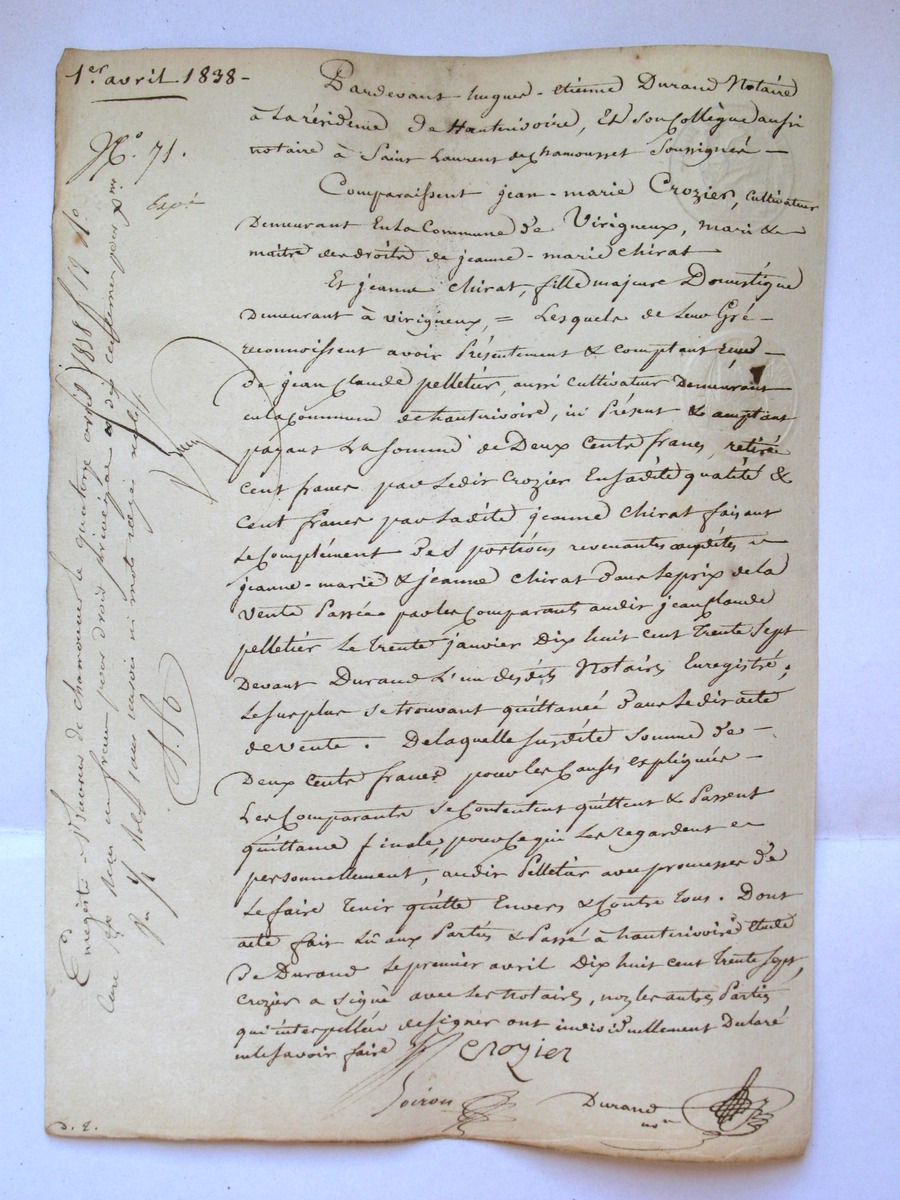 1er avril 1838 -
No. 71.
Expé
Pardevant hugues - etienne Durand Notaire
à La résidence de Hauterivoire, Et son Collègue aussi
notaire à Saint Laurent de chamousset Soussignés —
Comparaissent jean - marie Crozier, cultivateur
Demeurant En la Commune de Virigneux, mari &
maitre des droits de jeanne - marie chirat
Et jeanne chirat, fille majeure Domestique
Demeurant à virigneux, = Lesquels de Leur Gré -
reconnoissent avoir Présentement & comptant reçu -
de jean Claude pelletier, aussi cultivateur Demeurant
en la Commune de hauterivoire, ici Présent & comptant
payant La somme de Deux Cents francs, retirée
Cent francs par Ledit Crozier En sadite qualité &
Cent francs par Ladite jeanne Chirat faisant
Le Complément des portions revenantes auxdites
jeanne - marie & jeanne Chirat dans Le prix de la
vente Passée par les Comparants audit jean Claude
pelletier Le trente janvier Dix huit Cent trente Sept
Devant Durand L'un desdits Notaires Enregistré ;
Le Surplus se trouvant quittancé dans Ledit acte
de vente . De laquelle susdite somme de -
Deux Cents francs pour les Causes expliquées -
Les Comparants se Contentent quittent & Passent
quittance finale, pour ce qui Les regardent
personnellement, audit Pelletier avec promesses de
Le faire tenir quitte Envers & Contre tous . Dont
acte fait Lû aux Parties & Passé à hauterivoire Etude
de Durand Le premier avril Dix huit Cent trente Sept,
Crozier a signé avec Les Notaires, non les autres Parties
qui interpellées de signer ont individuellement Déclaré
ne le savoir faire
Crozier
Durand
non
Enregistré à St Laurent de chamousset le quatorze avril 1838 f 19
un franc pour droit principal et dix centimes pour Xme